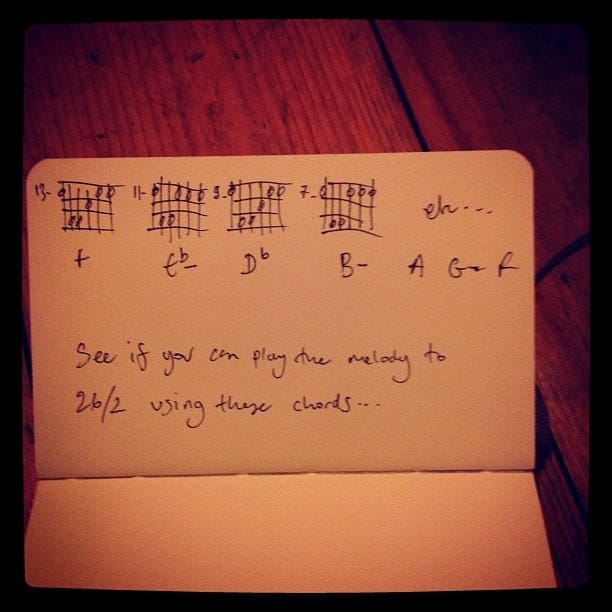 13- 11- 9- 7- eh...
F Eb- Db B- A G- F
See if you can play the melody to
26/2 using these chords...